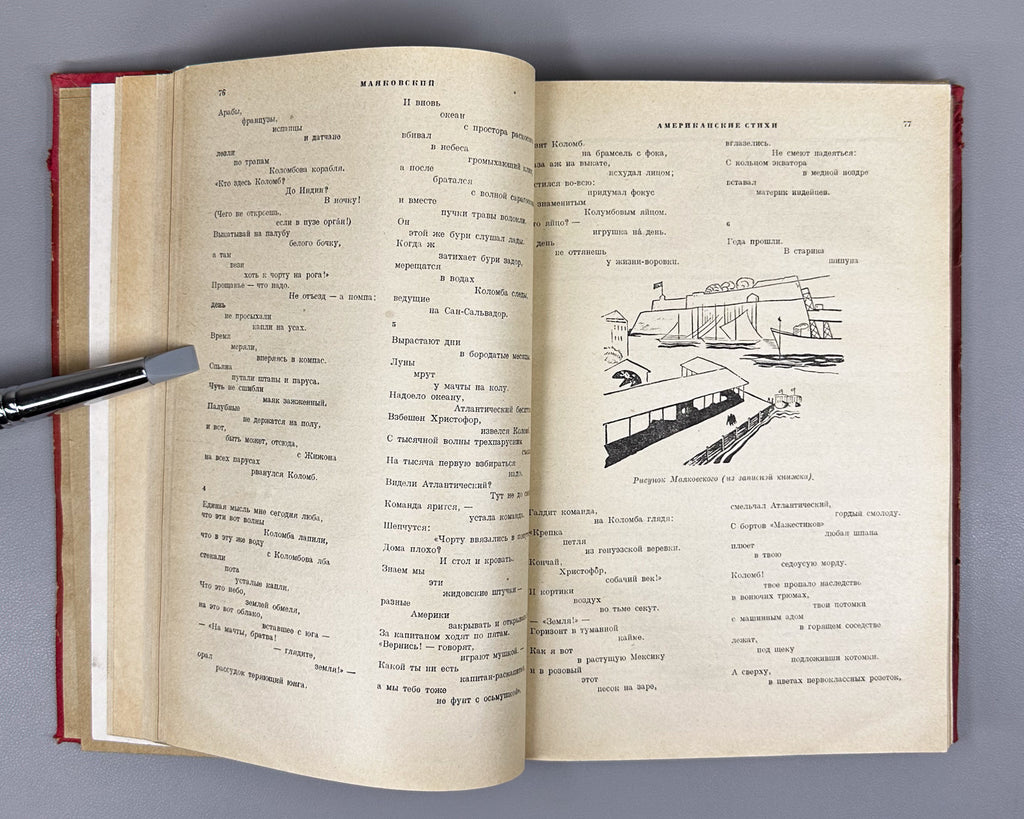 76
МАЯКОВСКИЙ
Арабы,
французы,
испанцы
и датчане
лезли
по трапам
Коломбова корабля.
«Кто здесь Коломб?
До Индии?
В ночку!
(Чего не откроешь,
если в пузе орга́н!)
Выкатывай на палубу
белого бочку,
а там
вези
хоть к чорту на рога!»
Прощанье — что надо.
Не отъезд — а помпа:
день
не просыхали
капли на усах.
Время
меряли,
вперяясь в компас.
Спьяна
путали штаны и паруса.
Чуть не сшибли
маяк зажженный.
Палубные
не держатся на полу,
и вот,
быть может, отсюда,
с Жижона
на всех парусах
рванулся Коломб.
4
Единая мысль мне сегодня люба,
что эти вот волны
Коломба лапили,
что в эту же воду
с Коломбова лба
стекали
пота
усталые капли.
Что это небо,
землей обмеля,
на это вот облако,
вставшее с юга —
— «На мачты, братва!
— глядите,
земля!» —
орал
рассудок теряющий юнга.
И вновь
океан
с простора
вбивал
в небеса
громыхающий
а после
братался
с волной
и вместе
пучки травы волокли.
Он
этой же бури слушал лады.
Когда ж
затихает бури задор,
мерещатся
в водах
Коломба следы,
ведущие
на Сан-Сальвадор.
5
Вырастают дни
в бородатые месяцы.
Луны
мрут
у мачты на колу.
Надоело океану,
Атлантический
Взбешен Христофор,
извелся
С тысячной волны трехпарусник
На тысяча первую взбираться
надо.
Видели Атлантический?
Тут не до
Команда ярится, —
устала команда.
Шепчутся:
«Чорту ввязались в
Дома плохо?
И стол и кровать.
Знаем мы
эти
жидовские штучки —
разные
Америки
закрывать и открывать
За капитаном ходят по пятам.
«Вернись! — говорят,
играют мушкой. —
Какой ты ни есть
капитан-раскапитан
а мы тебе тоже
не фунт с осьмушкой».
АМЕРИКАНСКИЕ СТИХИ
77
Коломб.
на брамсель с фока,
аж на выкате,
исхудал лицом;
во-всю:
придумал фокус
знаменитым
Колумбовым яйцом.
яйцо? —
игрушка на́ день.
день
не оттянешь
у жизни-воровки.
вглазелись.
Не смеют надеяться:
С кольцом экватора
в медной ноздре
вставал
материк индейцев.
6
Года прошли.
В старика
шипуна
Рисунок Маяковского (из записной книжки).
Галдит команда,
на Коломба глядя:
«Крепка
петля
из генуэзской веревки.
Кончай,
Христофор,
собачий век!»
И кортики
воздух
во тьме секут.
— «Земля!» —
Горизонт в туманной
кайме.
Как я вот
в растущую Мексику
и в розовый
этот
песок на заре,
смельчал Атлантический,
гордый смолоду.
С бортов «Мажестиков»
любая шпана
плюет
в твою
седоусую морду.
Коломб!
твое пропало наследство
в вонючих трюмах,
твои потомки
с машинным адом
в горящем соседстве
лежат,
под щеку
подложивши котомки.
А сверху,
в цветах первоклассных розеток,